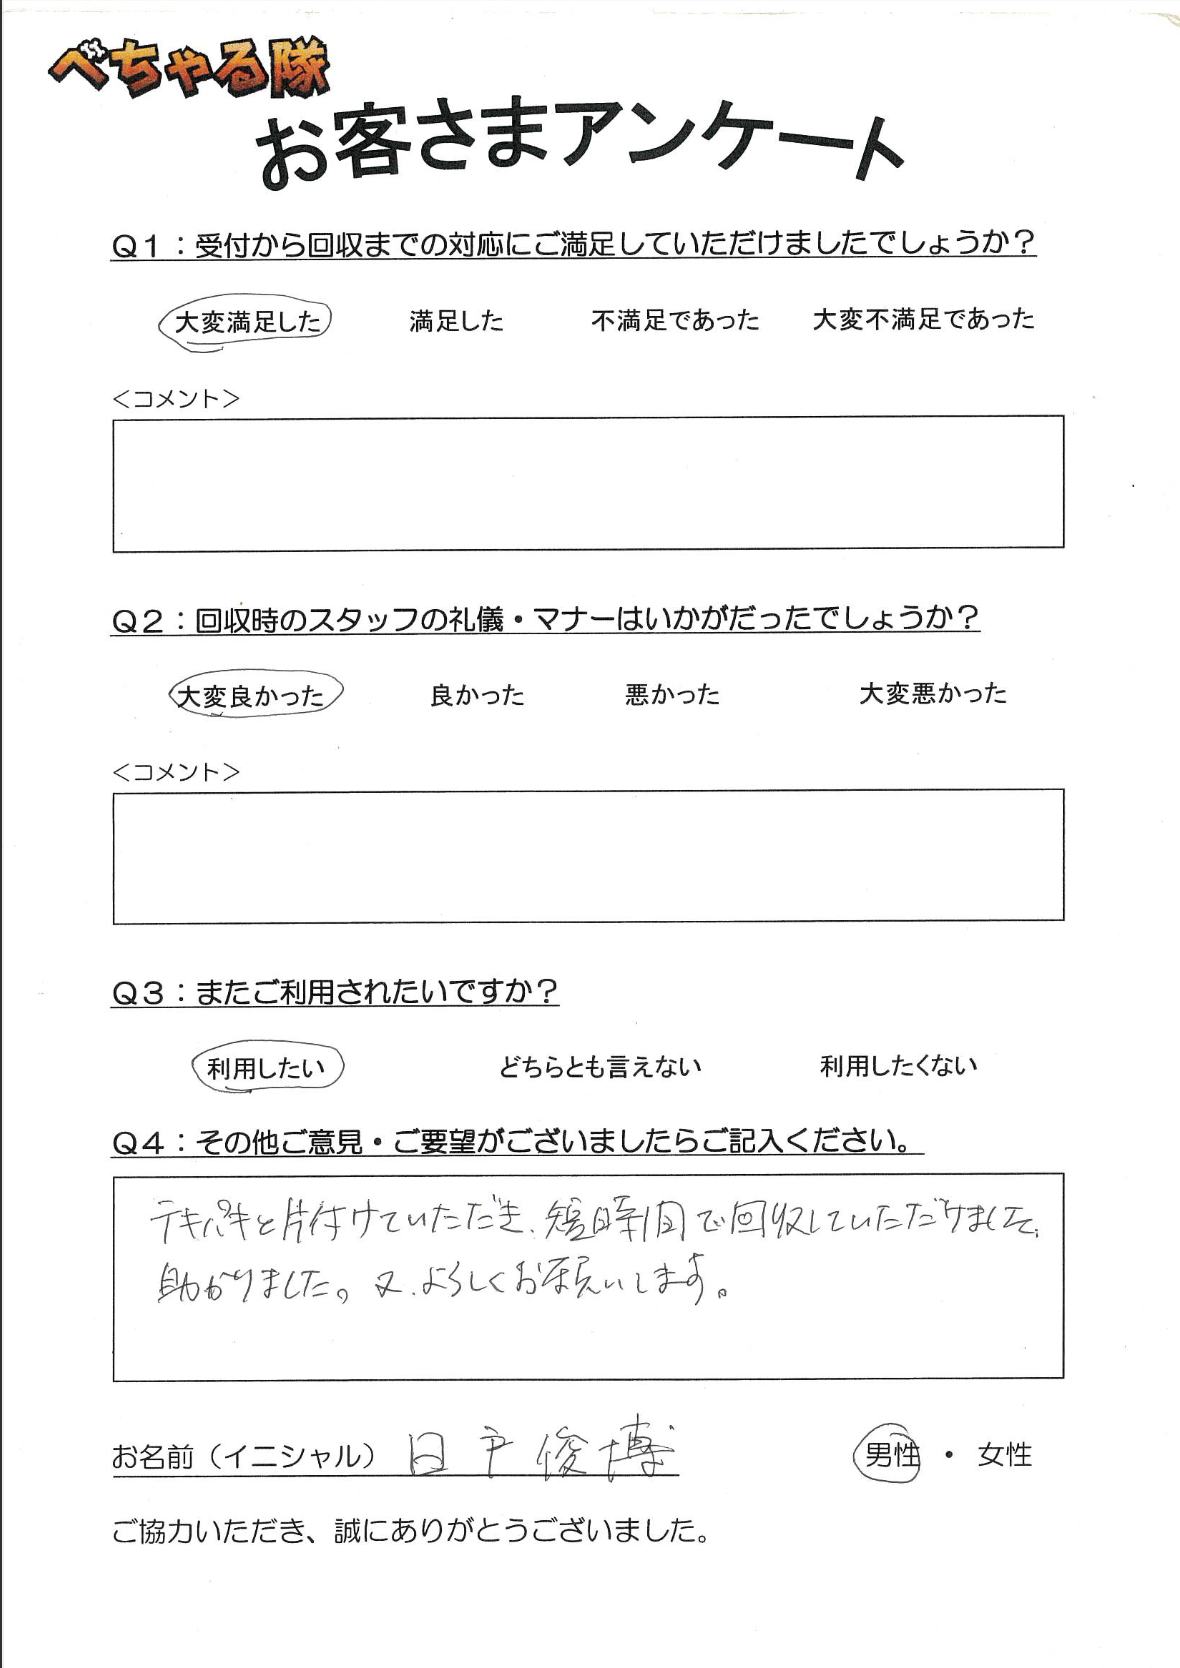 べちゃる隊
お客さまアンケート
Q1：受付から回収までの対応にご満足していただけましたでしょうか？
大変満足した 満足した 不満足であった 大変不満足であった
＜コメント＞
Q2：回収時のスタッフの礼儀・マナーはいかがだったでしょうか？
大変良かった 良かった 悪かった 大変悪かった
＜コメント＞
Q3：またご利用されたいですか？
利用したい どちらとも言えない 利用したくない
Q4：その他ご意見・ご要望がございましたらご記入ください。
テキパキと片付けていただき、短時間で回収していただけました、
助かりました。又、よろしくお願いします。
お名前（イニシャル） 日戸俊博 男性 ・ 女性
ご協力いただき、誠にありがとうございました。